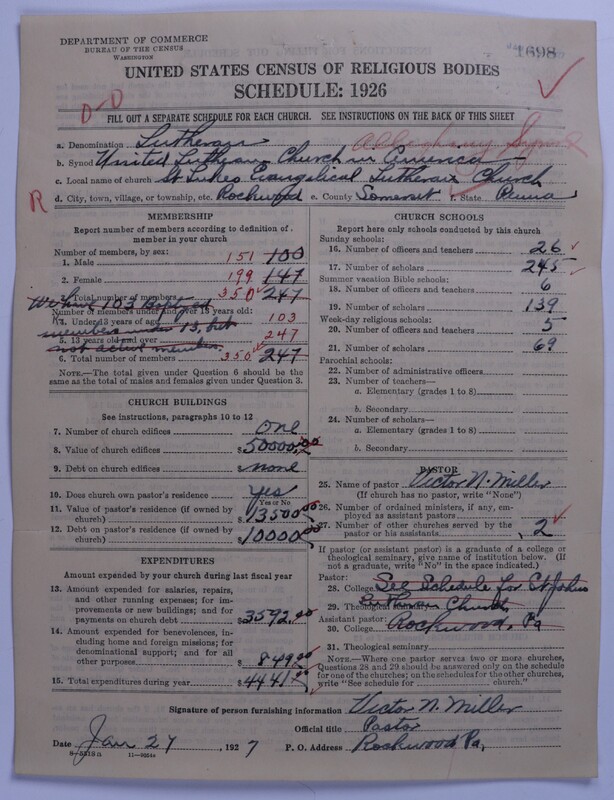 DEPARTMENT OF COMMERCE
BUREAU OF THE CENSUS
WASHINGTON
1698
UNITED STATES CENSUS OF RELIGIOUS BODIES
SCHEDULE: 1926
D-D
FILL OUT A SEPARATE SCHEDULE FOR EACH CHURCH. SEE INSTRUCTIONS ON THE BACK OF THIS SHEET
a. Denomination Lutheran Alleghany Synod
b. Synod United Lutheran Church in America
c. Local name of church St Lukes Evangelical Lutheran Church
R
d. City, town, village, or township, etc. Rockwood e. County Somerset f. State Penna
MEMBERSHIP
Report number of members according to definition of member in your church
Number of members, by sex:
1. Male 151 100
2. Female 199 147
3. Total number of members 350 247
We have 103 Baptized
Number of members under and over 13 years old:
4. Under 13 years of age 103
members under 13, but
5. 13 years old and over 247
not active members.
6. Total number of members 350 247
NOTE.—The total given under Question 6 should be
same as the total of males and females given under Question 3.
CHURCH BUILDINGS
See instructions, paragraphs 10 to 12
7. Number of church edifices one
8. Value of church edifices $50000.00
9. Debt on church edifices $none
10. Does church own pastor's residence Yes
Yes or No
11. Value of pastor's residence (if owned by
church) $13500.00
12. Debt on pastor's residence (if owned by
church) $10000.00
EXPENDITURES
Amount expended by your church during last fiscal year
13. Amount expended for salaries, repairs,
and other running expenses; for im-
provements or new buildings; and for
payments on church debt $3592.00
14. Amount expended for benevolences, in-
cluding home and foreign missions; for
denominational support; and for all
other purposes $849.00
15. Total expenditures during year $4441.00
CHURCH SCHOOLS
Report here only schools conducted by this church
Sunday schools:
16. Number of officers and teachers 26
17. Number of scholars 245
Summer vacation Bible schools:
18. Number of officers and teachers 6
19. Number of scholars 139
Week-day religious schools:
20. Number of officers and teachers 5
21. Number of scholars 69
Parochial schools:
22. Number of administrative officers
23. Number of teachers—
a. Elementary (grades 1 to 8)
b. Secondary
24. Number of scholars—
a. Elementary (grades 1 to 8)
b. Secondary
PASTOR
25. Name of pastor Victor N. Miller
(If church has no pastor, write "None")
26. Number of ordained ministers, if any, em-
ployed as assistant pastors
27. Number of other churches served by the
pastor or his assistants 2
If pastor (or assistant pastor) is a graduate of a college or
theological seminary, give name of institution below. (If
not a graduate, write "No" in the space indicated.)
Pastor:
28. College See Schedule for St Johns
29. Theological Lutheran Church
Assistant pastor:
30. College Rockwood, Pa
31. Theological seminary
NOTE.—Where one pastor serves two or more churches,
Questions 28 and 29 should be answered only on the schedule
for one of the churches; on the schedules for the other churches,
write "See schedule for church."
Signature of person furnishing information Victor N. Miller
Official title Pastor
Date Jan 27, 1927 P. O. Address Rockwood Pa,